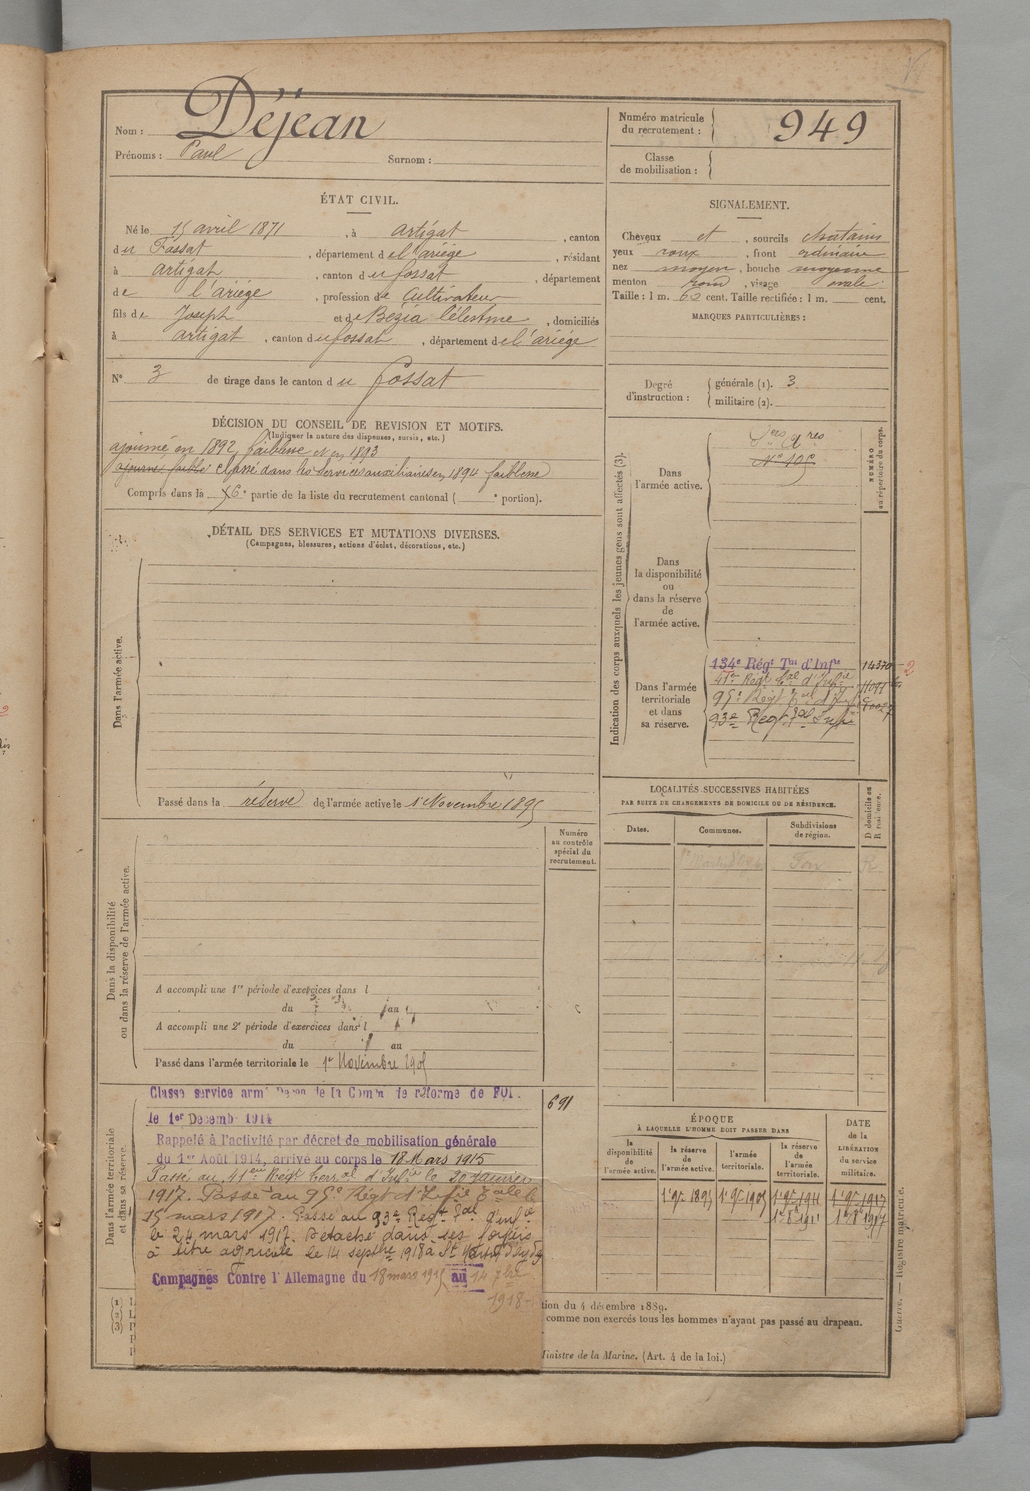 Nom : Déjean
Prénoms : Paul Surnom :
Numéro matricule du recrutement : 949
Classe de mobilisation :
ÉTAT CIVIL.
Né le 15 avril 1871, à Artigat, canton
du Fossat, département de l'ariège, résidant
à artigat, canton du fossat, département
de l'ariège, profession de Cultivateur
fils de Joseph et de Bezia Célestine, domiciliés
à artigat, canton du fossat, département de l'ariège
N° 3 de tirage dans le canton du Fossat
SIGNALEMENT.
Cheveux et, sourcils chatains
yeux roux, front ordinaire
nez moyen, bouche moyenne
menton rond, visage ovale.
Taille : 1 m. 62 cent. Taille rectifiée : 1 m. cent.
MARQUES PARTICULIÈRES :
Degré d'instruction : générale (1). 3
militaire (2).
DÉCISION DU CONSEIL DE REVISION ET MOTIFS.
(Indiquer la nature des dispenses, sursis, etc.)
ajourné en 1892, faiblesse et en 1893
classé dans les services auxiliaires en 1894 faiblesse
Compris dans la 6e partie de la liste du recrutement cantonal ( e portion).
DÉTAIL DES SERVICES ET MUTATIONS DIVERSES.
(Campagnes, blessures, actions d'éclat, décorations, etc.)
Dans l'armée active.
Passé dans la réserve de l'armée active le 1er Novembre 1895
Numéro au contrôle spécial du recrutement.
Dans la disponibilité ou dans la réserve de l'armée active.
A accompli une 1re période d'exercices dans l
du au
A accompli une 2e période d'exercices dans l
du au
Passé dans l'armée territoriale le 1er Novembre 1905
Dans l'armée territoriale et dans sa réserve.
Classé service armé de la Comm de réforme de FOI
le 1er Decemb 1914
691
Rappelé à l'activité par décret de mobilisation générale
du 1er Août 1914, arrivé au corps le 18 Mars 1915
Passé au 41eme Régt terral d'Infie le 20 Janvier
1917. Passé au 95e Régt d'Infie Tale le
15 mars 1917. Passé au 93e Regt Tal d'infie
le 24 mars 1917. Détaché dans ses foyers
à titre agricole le 14 septbre 1918 à St
Campagnes Contre l'Allemagne du 18 mars 1915 au 14 7bre
1918
Indication des corps auxquels les jeunes gens sont affectés (3).
NUMÉRO au répertoire du corps.
Dans l'armée active.
Sces Ares
N° 105
Dans la disponibilité ou dans la réserve de l'armée active.
Dans l'armée territoriale et dans sa réserve.
134e Régt Tal d'Infie 14370 2
41e Régt Tal d'Infie
95e Régt Tal d'Infie
93e Régt Tal Infie
LOCALITÉS SUCCESSIVES HABITÉES
PAR SUITE DE CHANGEMENTS DE DOMICILE OU DE RÉSIDENCE.
Dates. Communes. Subdivisions de région. D domicile ou R résidence.
ÉPOQUE
À LAQUELLE L'HOMME DOIT PASSER DANS
la disponibilité de l'armée active. la réserve de l'armée active. l'armée territoriale. la réserve de l'armée territoriale.
DATE de la LIBÉRATION du service militaire.
1er 9bre 1895 1er 9bre 1905 1er 9bre 1911 1er 9bre 1917
1er 8bre 1911 1er 8bre 1917
tion du 4 décembre 1889.
comme non exercés tous les hommes n'ayant pas passé au drapeau.
Ministre de la Marine. (Art. 4 de la loi.)
Guerre. — Registre matricule.